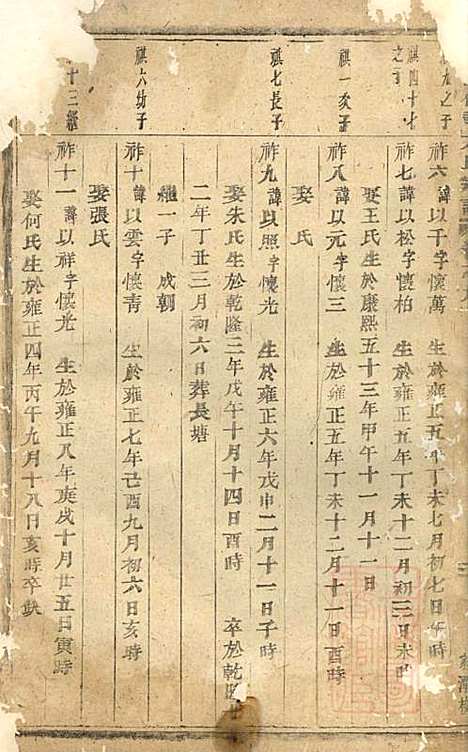 之子
祚六 諱以千字懷萬 生於雍正五年丁未七月初七日午時
祺四十七之子
祚七 諱以松字懷柏 生於雍正五年丁未十二月初三日未時
娶王氏生於康熙五十三年甲午十一月十一日
祺一次子
祚八 諱以元字懷三 生於雍正五年丁未十二月十一日酉時
娶 氏
祺七長子
祚九 諱以照字懷光 生於雍正六年戊申二月十一日子時
娶朱氏生於乾隆三年戊午十月十四日酉時 卒於乾隆
二年丁丑三月初六日葬長塘
繼一子 成朝
祺六幼子
祚十 諱以雲字懷青 生於雍正七年己酉九月初六日亥時
娶張氏
十三繼
祚十一 諱以祥字懷光 生於雍正八年庚戌十月廿五日寅時
娶何氏生於雍正四年丙午九月十八日亥時卒缺